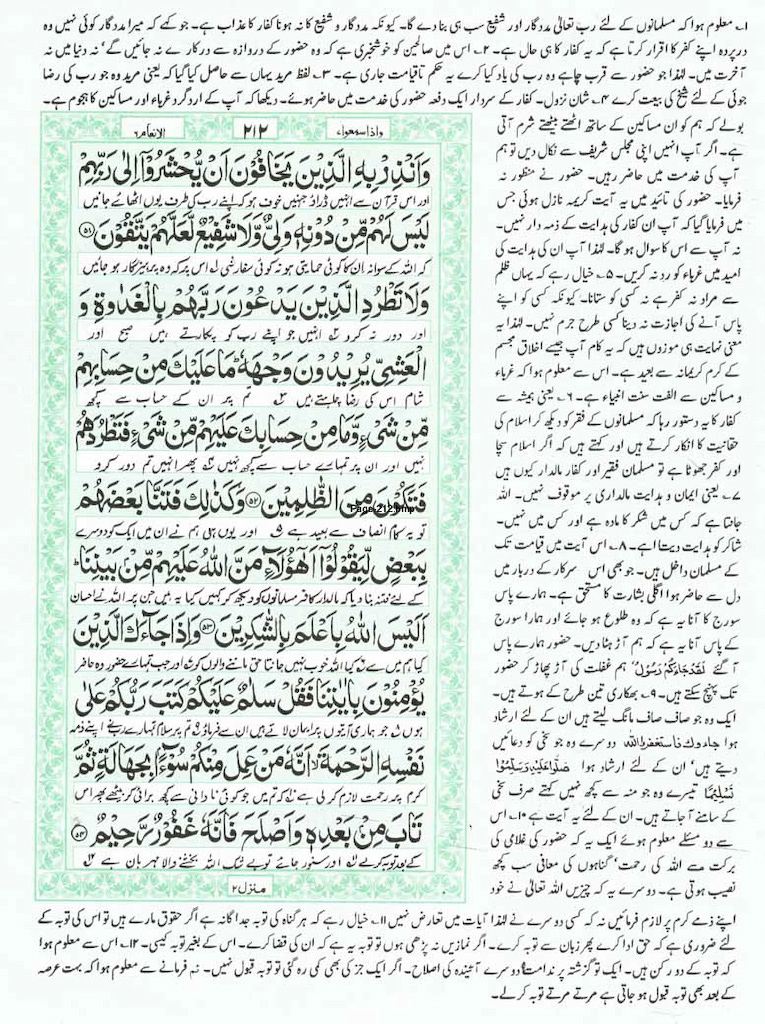 ۱؎ معلوم ہوا کہ مسلمانوں کے لئے رب تعالیٰ مددگار اور شفیع سب ہی بنا دے گا۔ کیونکہ مددگار و شفیع کا نہ ہونا کفار کا عذاب ہے۔ جو کہے کہ میرا مددگار کوئی نہیں وہ
درپردہ اپنے کفر کا اقرار کرتا ہے کہ یہ کفار کا ہی حال ہے۔ ۲؎ اس میں صالحین کو خوشخبری ہے کہ وہ حضور کے دروازہ سے درکارے نہ جائیں گے' نہ دنیا میں نہ
آخرت میں۔ لہٰذا جو حضور سے قرب چاہے وہ رب کی یاد کیا کرے یہ حکم تاقیامت جاری ہے۔ ۳؎ لفظ مرید یہاں سے حاصل کیا گیا کہ یعنی مرید وہ جو رب کی رضا
جوئی کے لئے شیخ کی بیعت کرے ۴؎ شان نزول۔ کفار کے سردار ایک دفعہ حضور کی خدمت میں حاضر ہوئے۔ دیکھا کہ آپ کے اردگرد غرباء اور مساکین کا ہجوم ہے۔
واذا سمعوا۷ ۲۱۲ الانعام۶
وَاَنْذِرْ بِهِ الَّذِيْنَ يَخَافُوْنَ اَنْ يُّحْشَرُوْٓا اِلٰى رَبِّهِمْ
اور اس قرآن سے انہیں ڈراؤ جنہیں خوف ہو کہ اپنے رب کی طرف یوں اٹھائے جائیں
لَيْسَ لَهُمْ مِّنْ دُوْنِهٖ وَلِيٌّ وَّلَا شَفِيْعٌ لَّعَلَّهُمْ يَتَّقُوْنَ ۵۱
کہ اللہ کے سوا نہ ان کا کوئی حمایتی ہو نہ کوئی سفارشی ۱؎ اس پر کہ وہ پرہیزگار ہو جائیں
وَلَا تَطْرُدِ الَّذِيْنَ يَدْعُوْنَ رَبَّهُمْ بِالْغَدٰوةِ وَ
اور دور نہ کرو ۲؎ انہیں جو اپنے رب کو پکارتے ہیں صبح اور
الْعَشِيِّ يُرِيْدُوْنَ وَجْهَهٗ ؕ مَا عَلَيْكَ مِنْ حِسَابِهِمْ
شام اس کی رضا چاہتے ہیں ۳؎ تم پر ان کے حساب سے کچھ
مِّنْ شَيْءٍ وَّمَا مِنْ حِسَابِكَ عَلَيْهِمْ مِّنْ شَيْءٍ فَتَطْرُدَهُمْ
نہیں اور ان پر تمہارے حساب سے کچھ نہیں ۴؎ پھر انہیں تم دور کرو
فَتَكُوْنَ مِنَ الظّٰلِمِيْنَ ۵۲ وَكَذٰلِكَ فَتَنَّا بَعْضَهُمْ
Page-212.bmp
تو یہ کام انصاف سے بعید ہے ۵؎ اور یوں ہی ہم نے ان میں ایک کو دوسرے
بِبَعْضٍ لِّيَقُوْلُوْٓا اَهٰٓؤُلَآءِ مَنَّ اللّٰهُ عَلَيْهِمْ مِّنْۢ بَيْنِنَا ؕ
کے لئے فتنہ بنا دیا کہ مالدار کافر مسلمانوں کو دیکھ کر کہیں کیا یہ ہیں جن پر اللہ نے احسان
اَلَيْسَ اللّٰهُ بِاَعْلَمَ بِالشّٰكِرِيْنَ ۵۳ وَاِذَا جَآءَكَ الَّذِيْنَ
کیا ہم میں سے ۶؎ کیا اللہ خوب نہیں جانتا حق ماننے والوں کو ۷؎ اور جب تمہارے حضور وہ حاضر
يُؤْمِنُوْنَ بِاٰيٰتِنَا فَقُلْ سَلٰمٌ عَلَيْكُمْ كَتَبَ رَبُّكُمْ عَلٰى
ہوں ۸؎ جو ہماری آیتوں پر ایمان لاتے ہیں ان سے فرماؤ ۹؎ تم پر سلام تمہارے رب نے اپنے ذمہ
نَفْسِهِ الرَّحْمَةَ ۙ اَنَّهٗ مَنْ عَمِلَ مِنْكُمْ سُوْٓءًۢا بِجَهَالَةٍ ثُمَّ
کرم پر رحمت لازم کر لی ہے ۱۰؎ کہ تم میں جو کوئی نادانی سے کچھ برائی کر بیٹھے پھر اس
تَابَ مِنْۢ بَعْدِهٖ وَاَصْلَحَ فَاَنَّهٗ غَفُوْرٌ رَّحِيْمٌ ۵۴
کے بعد توبہ کرے ۱۱؎ اور سنور جائے تو بے شک اللہ بخشنے والا مہربان ہے ۱۲؎
منزل۲
بولے کہ ہم کو ان مساکین کے ساتھ اٹھتے بیٹھتے شرم آتی
ہے۔ اگر آپ انہیں اپنی مجلس شریف سے نکال دیں تو ہم
آپ کی خدمت میں حاضر رہیں۔ حضور نے منظور نہ
فرمایا۔ حضور کی تائید میں یہ آیت کریمہ نازل ہوئی جس
میں فرمایا گیا کہ آپ ان کفار کی ہدایت کے ذمہ دار نہیں۔
نہ آپ سے اس کا سوال ہو گا۔ لہٰذا آپ ان کی ہدایت کی
امید میں غرباء کو رد نہ کریں۔ ۵؎ خیال رہے کہ یہاں ظلم
سے مراد نہ کفر ہے نہ کسی کو ستانا۔ کیونکہ کسی کو اپنے
پاس آنے کی اجازت نہ دینا کسی طرح جرم نہیں۔ لہٰذا یہ
معنی نہایت ہی موزوں ہیں کہ یہ کام آپ جیسے اخلاق مجسم
کے کرم کریمانہ سے بعید ہے۔ اس سے معلوم ہوا کہ غرباء
و مساکین سے الفت سنت انبیاء ہے۔ ۶؎ یعنی ہمیشہ سے
کفار کا یہ دستور رہا کہ مسلمانوں کے فقر کو دیکھ کر اسلام کی
حقانیت کا انکار کرتے ہیں اور کہتے ہیں کہ اگر اسلام سچا
اور کفر جھوٹا ہے تو مسلمان فقیر اور کفار مالدار کیوں ہیں
۷؎ یعنی ایمان و ہدایت مالداری پر موقوف نہیں۔ اللہ
جانتا ہے کہ کس میں شکر کا مادہ ہے اور کس میں نہیں۔
شاکر کو ہدایت دیتا ہے۔ ۸؎ اس آیت میں قیامت تک
کے مسلمان داخل ہیں۔ جو بھی اس سرکار کے دربار میں
دل سے حاضر ہوا اگلی بشارت کا مستحق ہے۔ ہمارے پاس
سورج کا آنا یہ ہے کہ وہ طلوع ہو جائے اور ہمارا سورج
کے پاس آنا یہ ہے کہ ہم آڑ ہٹا دیں۔ حضور ہمارے پاس
آ گئے لَقَدْ جَآءَكُمْ رَسُوْلٌ' ہم غفلت کی آڑ پھاڑ کر حضور
تک پہنچ سکتے ہیں۔ ۹؎ بھکاری تین طرح کے ہوتے ہیں۔
ایک وہ جو صاف صاف مانگ لیتے ہیں ان کے لئے ارشاد
ہوا جاءوك فاستغفروا الله دوسرے وہ جو سخی کو دعائیں
دیتے ہیں' ان کے لئے ارشاد ہوا صَلُّوْا عَلَيْهِ وَسَلِّمُوْا
تَسْلِيْمًا تیسرے وہ جو منہ سے کچھ نہیں کہتے صرف سخی
کے سامنے آ جاتے ہیں۔ ان کے لئے یہ آیت ہے ۱۰؎ اس
سے دو مسئلے معلوم ہوئے ایک یہ کہ حضور کی غلامی کی
برکت سے اللہ کی رحمت' گناہوں کی معافی سب کچھ
نصیب ہوتی ہے۔ دوسرے یہ کہ یہ چیزیں اللہ تعالیٰ نے خود
اپنے ذمے کرم پر لازم فرمائیں نہ کہ کسی دوسرے نے لہٰذا آیات میں تعارض نہیں ۱۱؎ خیال رہے کہ ہر گناہ کی توبہ جداگانہ ہے اگر حقوق مارے ہیں تو اس کی توبہ کے
لئے ضروری ہے کہ حق ادا کرے پھر زبان سے توبہ کرے۔ اگر نمازیں نہ پڑھی ہوں تو توبہ یہ ہے کہ ان کی قضا کرے۔ اس کے بغیر توبہ کیسی۔ ۱۲؎ اس سے معلوم ہوا
کہ توبہ کے دو رکن ہیں۔ ایک تو گزشتہ پر ندامت' دوسرے آئیندہ کی اصلاح۔ اگر ایک جز کی بھی کمی رہ گئی تو توبہ قبول نہیں۔ ثم فرمانے سے معلوم ہوا کہ بہت عرصہ
کے بعد بھی توبہ قبول ہو جاتی ہے مرتے مرتے توبہ کر لے۔